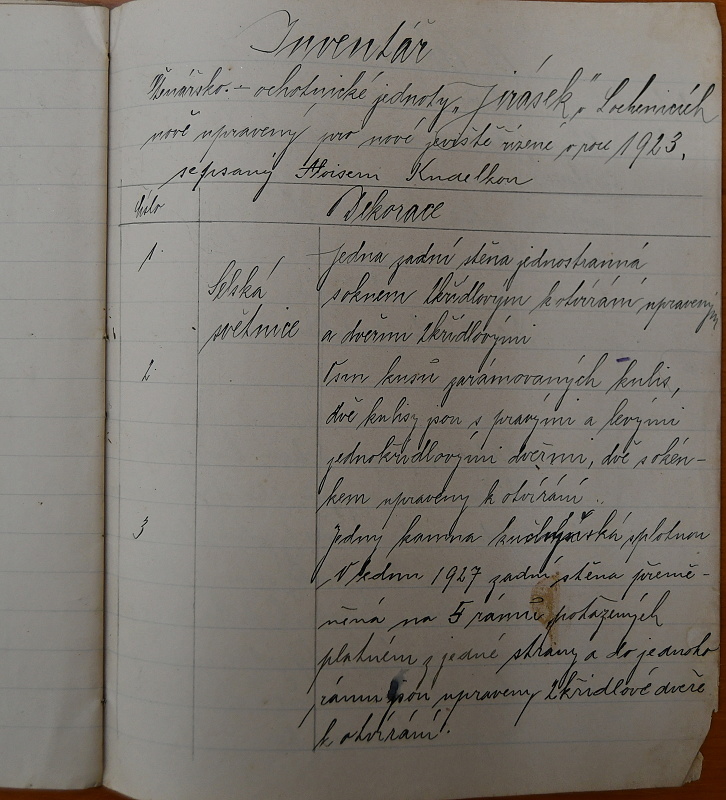 Inventář
Čtenářsko - ochotnické jednoty „Jirásek" v Lochenicích
nově upravený pro nové jeviště řízené v roce 1923.
sepsaný Aloisem Kudelkou
Číslo Dekorace
1. Jedna zadní stěna jednostranná
Selská soknem 2křídlovým k otvírání upraveným
světnice a dveřmi 2křídlovými
2. Osm kusů zarámovaných kulis,
dvě kulisy jsou s pravými a levými
jednokřídlovými dveřmi, dvě s okén-
kem upraveny k otvírání.
3 Jedny kamna s plotnou
V lednu 1927 zadní stěna přemě-
něná na 5 rámů potažených
platném z jedné strany a do jednoho
rámu jsou upraveny 2křídlové dveře
k otvírání.